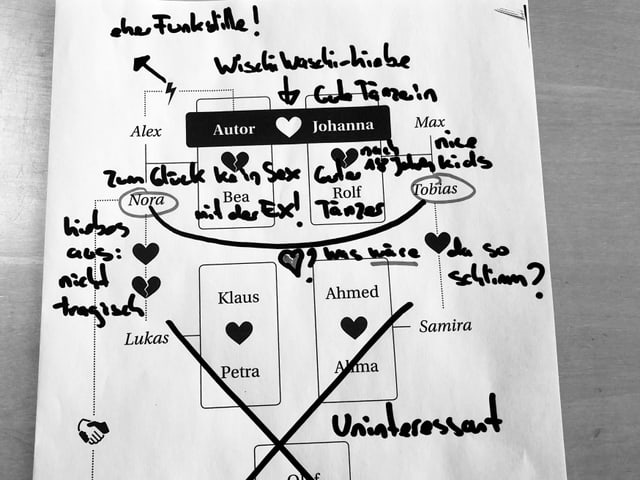 eher Funkstille!
WischiWaschi-Liebe
Gute Tänzerin
Alex
Autor Johanna
Max
nice
kids
nach
18 Jahren
zum Glück kein Sex
mit der Ex!
Guter
Tänzer
Nora
Bea
Rolf
Tobias
Liebes
aus:
nicht
tragisch
? was wäre da so
schlimm?
Klaus
Petra
Ahmed
Alma
Lukas
Samira
Uninteressant